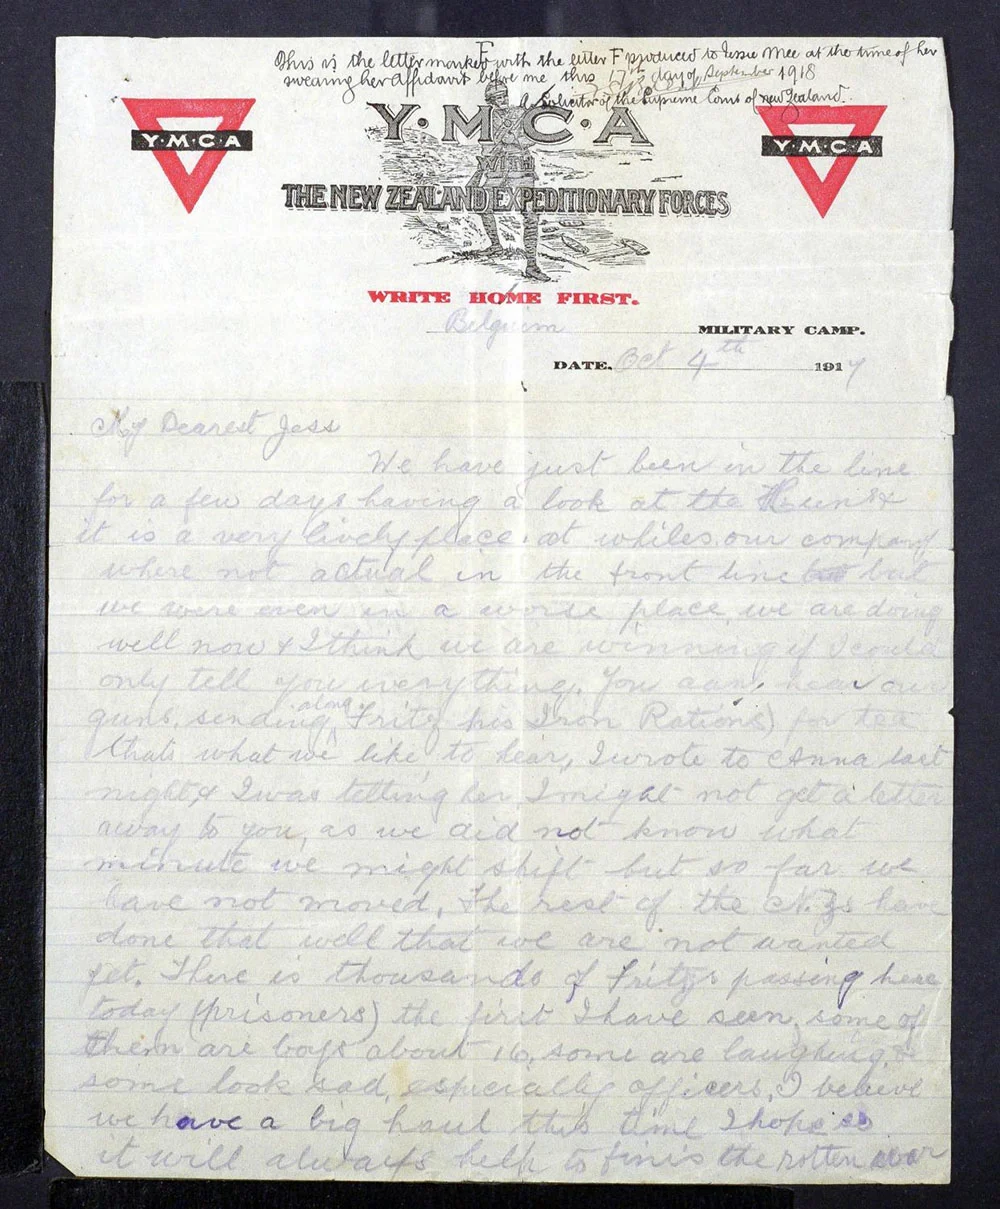 This is the letter marked F with the letter F produced to Jessie Mee at the time of her
swearing her Affidavit before me this 17th day of September 1918
A Solicitor of the Supreme Court of New Zealand.
Y·M·C·A
Y·M·C·A
Y·M·C·A
WITH
THE NEW ZEALAND EXPEDITIONARY FORCES
WRITE HOME FIRST.
Belguim MILITARY CAMP.
DATE. Oct 4th 1917
My Dearest Jess
We have just been in the line
for a few days having a look at the Hun &
it is a very lively place at whiles, our company
where not actual in the front line but
we were even in a worse place, we are doing
well now & I think we are winning if I could
only tell you everything. You can, hear our
guns, sending along Fritz his Iron Rations) for tea
thats what we like, to hear, I wrote to Anna last
night, & I was telling her I might not get a letter
away to you, as we did not know what
minute we might shift but so far we
have not moved. The rest of the N.Zs have
done that well that we are not wanted
yet. There is thousands of Fritzs passing here
today (prisoners) the first I have seen, some of
them are boys about 16, some are laughing &
some look sad, especially officers. I believe
we have a big haul this time I hope so
it will always help to finis the rotten war